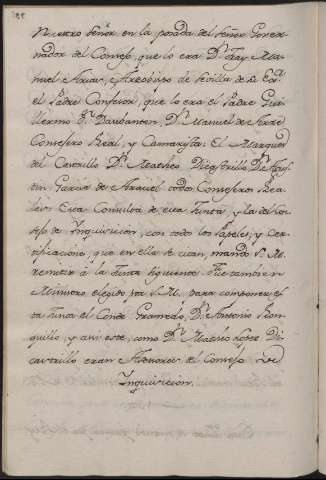 Nuestro Señor, en la posada del Señor Gover-
nador del Consejo, que lo era D.n Fray Ma-
nuel Arias, Arzobispo de Sevilla
el Padre Confesor, que lo era el Padre Gui-
llermo Daubanton, D.n Manuel de
Consejero Real, y Camarista: El Marques
del Castrillo D.n Matheo
Garcia de Araciel todos Consejeros Rea-
les: Esta Consulta de esta Junta, y la del Con-
sejo de Inquisicion, con todos los Papeles, y Cer-
tificaciones, que en ella se citan, mando S. M.
remitir à la Junta siguiente: Fue tambien
Ministro elegido por S. M. para componer es-
ta Junta el Conde Gramedo, D.n Antonio Ron-
quillo, y asi este, como D.n Matheo Lopez Di-
castrillo eran Asesores del Consejo de
Inquisicion.